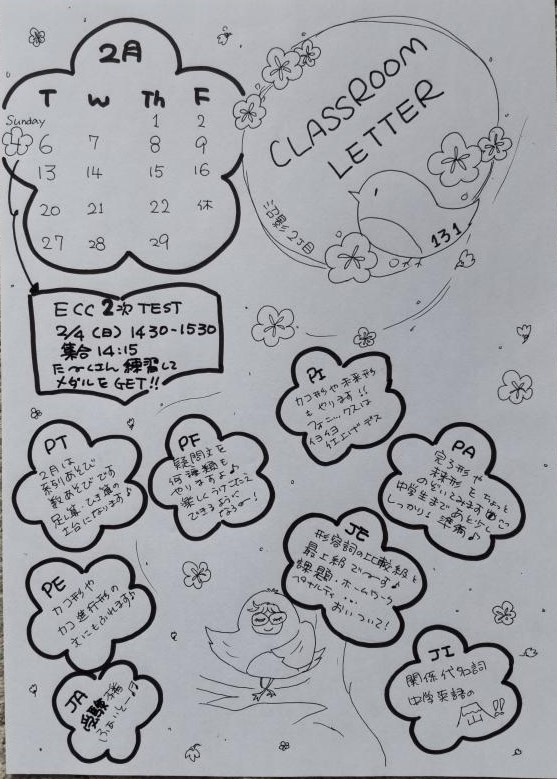 2月
T W Th F
Sunday
1 2
4 6 7 8 9
13 14 15 16
20 21 22 休
27 28 29
CLASSROOM
LETTER
沼影2丁目
131
ECC 2次 TEST
2/4 (日) 1430-1530
集合 14:15
たーくさん 練習して
メダルを GET!!
PI
カコ形や未来形
もやります!!
フォニックスは
イヨイヨ
仕上げデス
PT
2月は
系列あそび
数あそびです
足し算、ひき算の
土台になります♪
PF
疑問文を
何種類も
やりますよ♪
楽しくうけこたえ
できるように
なるのー!
PA
完了形や
未来形をちょっと
のぞいてみます
中学生まであと少し
しっかり準備♪
JE
形容詞の比較級と
最上級でーす♪
課題、ホームワーク
おいついて!
PE
カコ形や
カコ進行形の
文にもふれます♪
JA
受験
ふぁいとー!
JI
関係代名詞
中学英語の
山!!